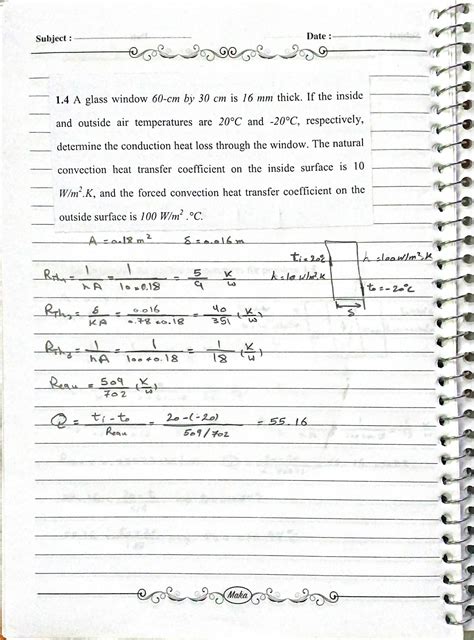 Subject : Date :
1.4 A glass window 60-cm by 30 cm is 16 mm thick. If the inside
and outside air temperatures are 20°C and -20°C, respectively,
determine the conduction heat loss through the window. The natural
convection heat transfer coefficient on the inside surface is 10
W/m².K, and the forced convection heat transfer coefficient on the
outside surface is 100 W/m² .°C.
A = 0.18 m² δ = 0.016 m
ti = 20°C h = 100 W/m².K
h = 10 W/m².K
to = -20°C
δ
Rth₁ = 1/hA = 1/10×0.18 = 5/9 K/W
Rth₂ = δ/KA = 0.016/0.78×0.18 = 40/351 (K/W)
Rth₃ = 1/hA = 1/100×0.18 = 1/18 (K/W)
Requ = 509/702 (K/W)
Q = ti - to/Requ = 20-(-20)/509/702 = 55.16
Maka